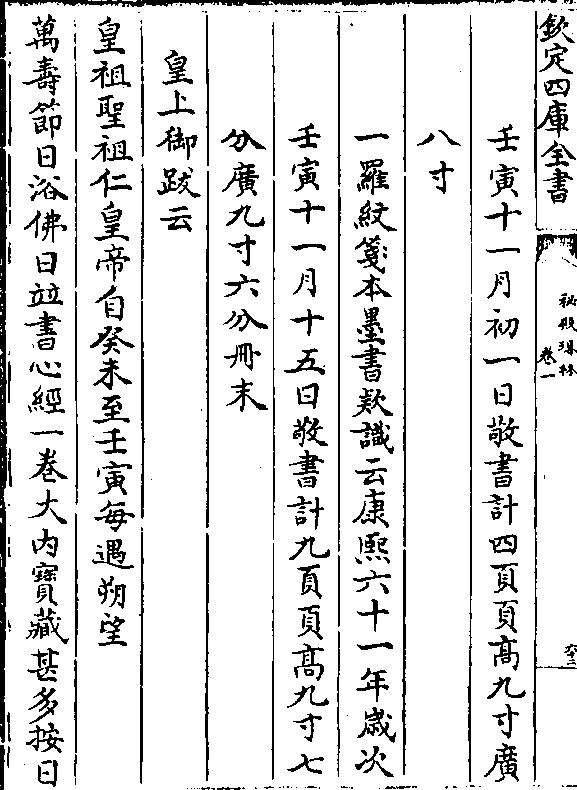 欽定四庫全書
祕殿珠林
卷一
壬寅十一月初一日敬書計四頁頁高九寸廣
八寸
一羅紋箋本墨書款識云康熙六十一年歲次
壬寅十一月十五日敬書計九頁頁高九寸七
分廣九寸六分冊末
皇上御跋云
皇祖聖祖仁皇帝自癸未至壬寅每遇朔望
萬壽節日浴佛日竝書心經一卷大內寶藏甚多按日